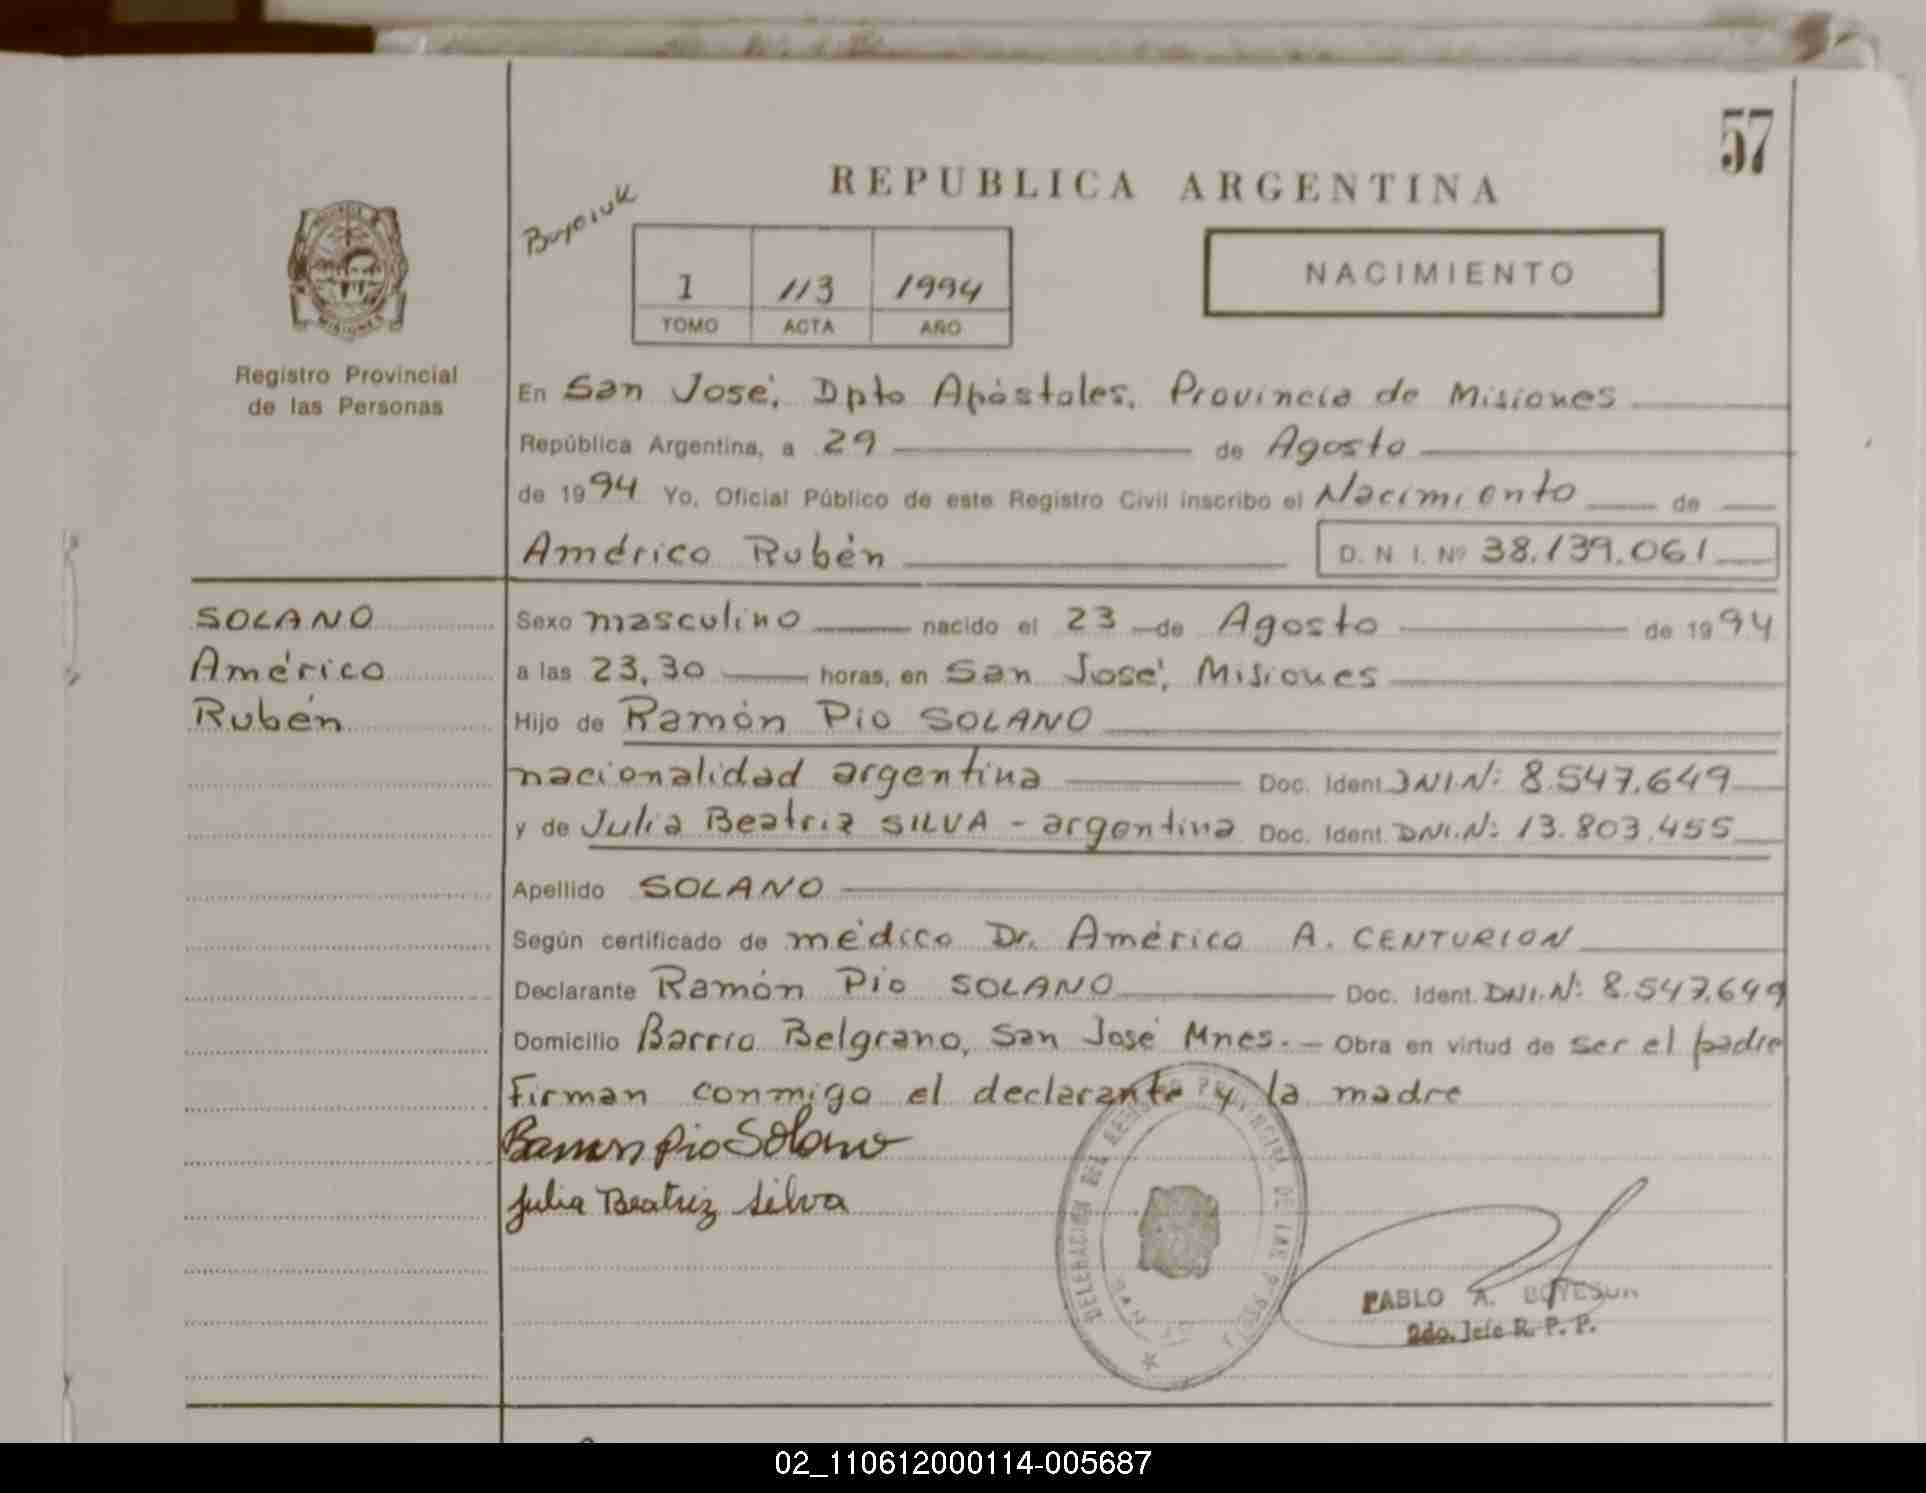 57
REPUBLICA ARGENTINA
NACIMIENTO
1 113 1994
TOMO ACTA AÑO
MISIONES
Registro Provincial
de las Personas
En San José, Dpto Apóstoles, Provincia de Misiones
República Argentina, a 29 de Agosto
de 1994 Yo, Oficial Público de este Registro Civil inscribo el Nacimiento de
Américo Rubén D. N. I. Nº 38.139.061
SOLANO
Américo
Rubén
Sexo masculino nacido el 23 de Agosto de 1994
a las 23,30 horas, en San José, Misiones
Hijo de Ramón Pio SOLANO
nacionalidad argentina Doc. Ident. DNI.Nº: 8.547.649
y de Julia Beatriz SILVA - argentina Doc. Ident. DNI.Nº: 13.803.455
Apellido SOLANO
Según certificado de médico Dr. Américo A. CENTURION
Declarante Ramón Pio SOLANO Doc. Ident. DNI.Nº: 8.547.649
Domicilio Barrio Belgrano, San José Mnes. - Obra en virtud de ser el padre
Firman conmigo el declarante y la madre
Ramon Pio Solano
Julia Beatriz Silva
PABLO A.
2do. Jefe R. P. P.
02_110612000114-005687